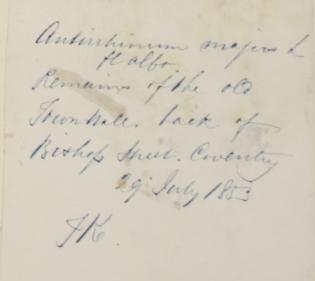 Antirrhinum majus L
fl albo.
Remains of the old
Town Wall. back of
Bishop Street. Coventry
29 July 1853
TK.